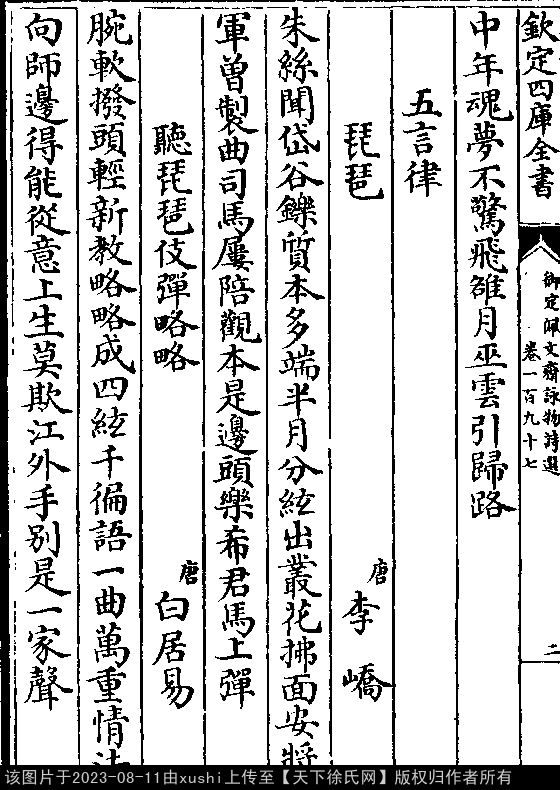 欽定四庫全書
御定佩文齋詠物詩選
卷一百九十七
二
中年魂夢不驚飛雉月巫雲引歸路
五言律
琵琶
唐
李嶠
朱絲聞岱谷鑠質本多端半月分絃出叢花拂面安將
軍曾製曲司馬屢陪觀本是邊頭樂希君馬上彈
聽琵琶伎彈略略
唐
白居易
腕軟撥頭輕新教略略成四絃千徧語一曲萬重情法
向師邊得能從意上生莫欺江外手别是一家聲
该图片于2023-08-11由xushi上传至【天下徐氏网】版权归作者所有